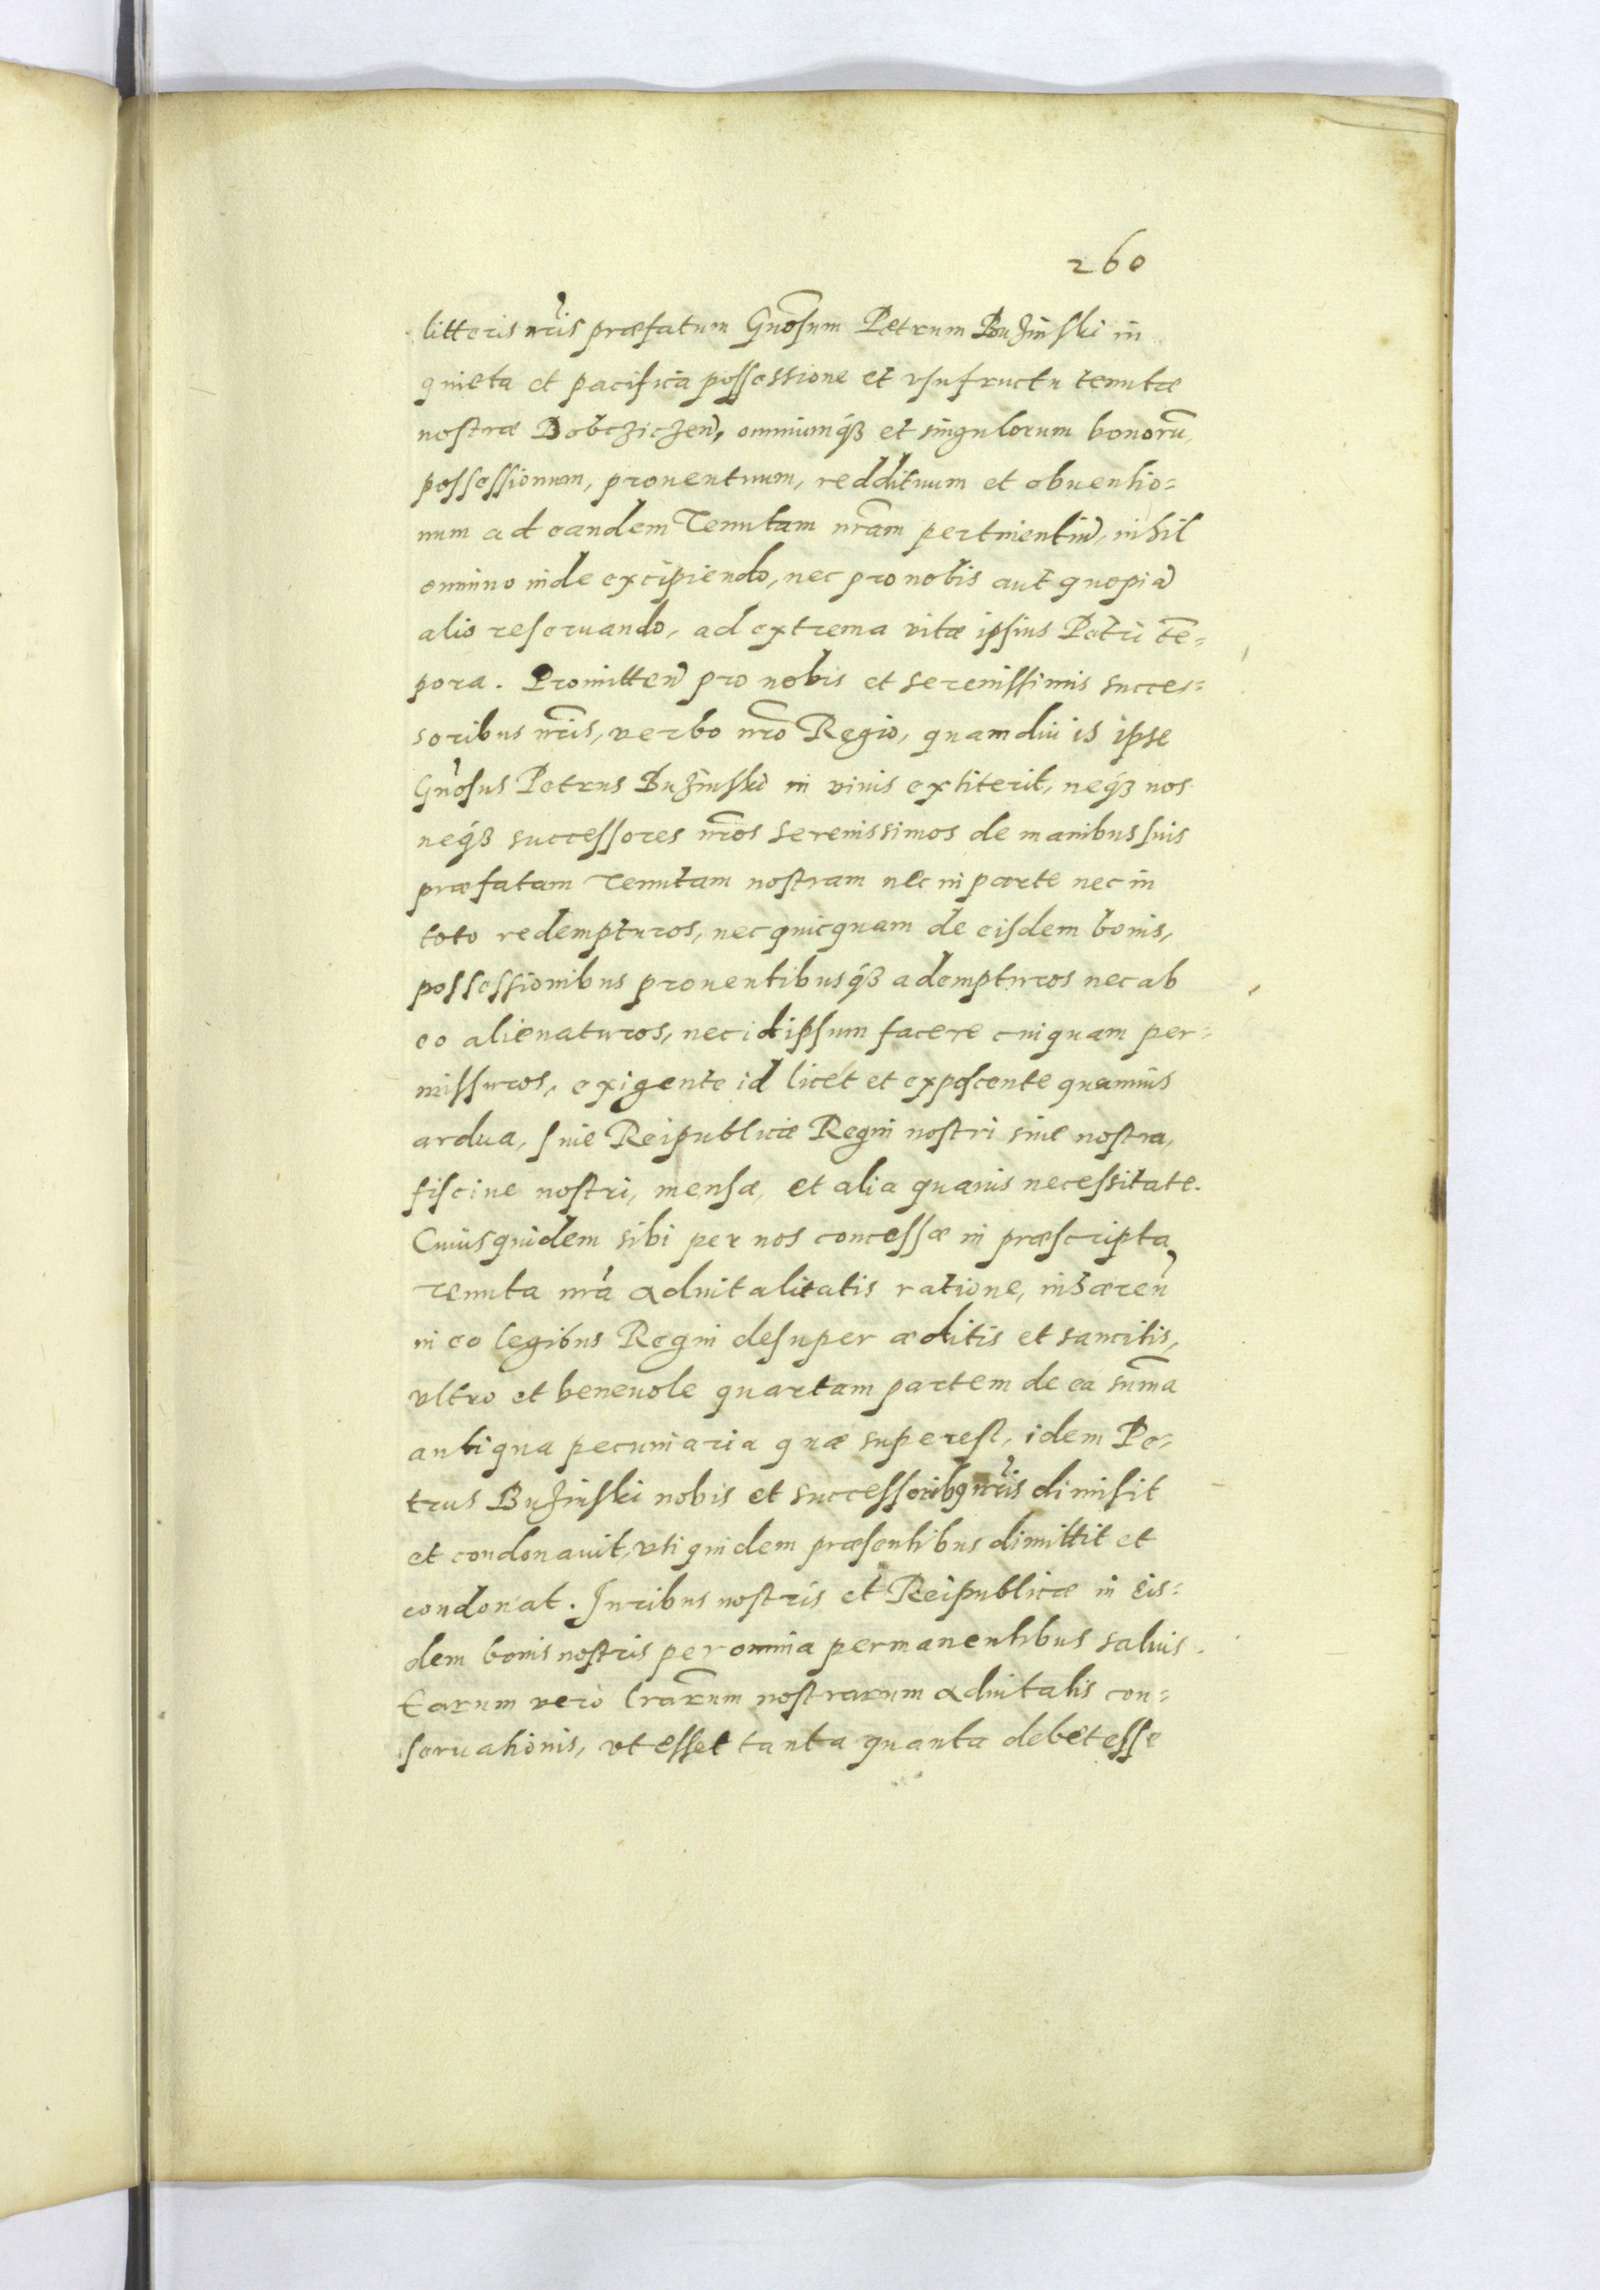 260
litteris nr̃is præfatum Gnõsum Petrum Buzinski in
quieta et pacifica possessione et vsufructu tenutæ
nostræ Dobcziczen̄, omniumq́ʒ et singulorum bonorũ,
possessionum, prouentuum, reddituum et obuentio=
num ad eandem Tenutam nr̃am pertinentiũ, nihil
omnino inde excipiendo, nec pro nobis aut quopiã
alio reseruando, ad extrema vitæ ipsius Petri tẽ=
pora. Promitten̄ pro nobis et serenissimis succes=
soribus nr̃is, verbo nr̃o Regio, quamdiu is ipse
Gnõsus Petrus Buzinski in viuis extiterit, neq́ʒ nos
neq́ʒ successores nr̃os serenissimos de manibus suis
præfatam Tenutam nostram nec in parte nec in
toto redempturos, nec quicquam de eisdem bonis,
possessionibus prouentibusq́ʒ adempturos nec ab
eo alienaturos, nec id ipsum facere cuiquam per=
missuros, exigente id licet et exposcente quamuis
ardua, siue Reipublicæ Regni nostri siue nostra,
fisci ne nostri, mensæ, et alia quauis necessitate.
Cuius quidem sibi per nos concessæ in præscripta
Tenuta nr̃a aduitalitatis ratione, inhæren̄
in eo legibus Regni desuper æditis et sancitis,
vltro et beneuole quartam partem de ea sum̃a
antiqua pecuniaria quæ superest, idem Pe=
trus Buzinski nobis et successoribꝯ nr̃is dimisit
et condonauit, vti quidem præsentibus dimittit et
condonat. Iuribus nostris et Reipublicæ in eis=
dem bonis nostris per omnia permanentibus saluis.
Earum verò lr̃arum nostrarum aduitalis con=
seruationis, vt esset tanta quanta debet esse